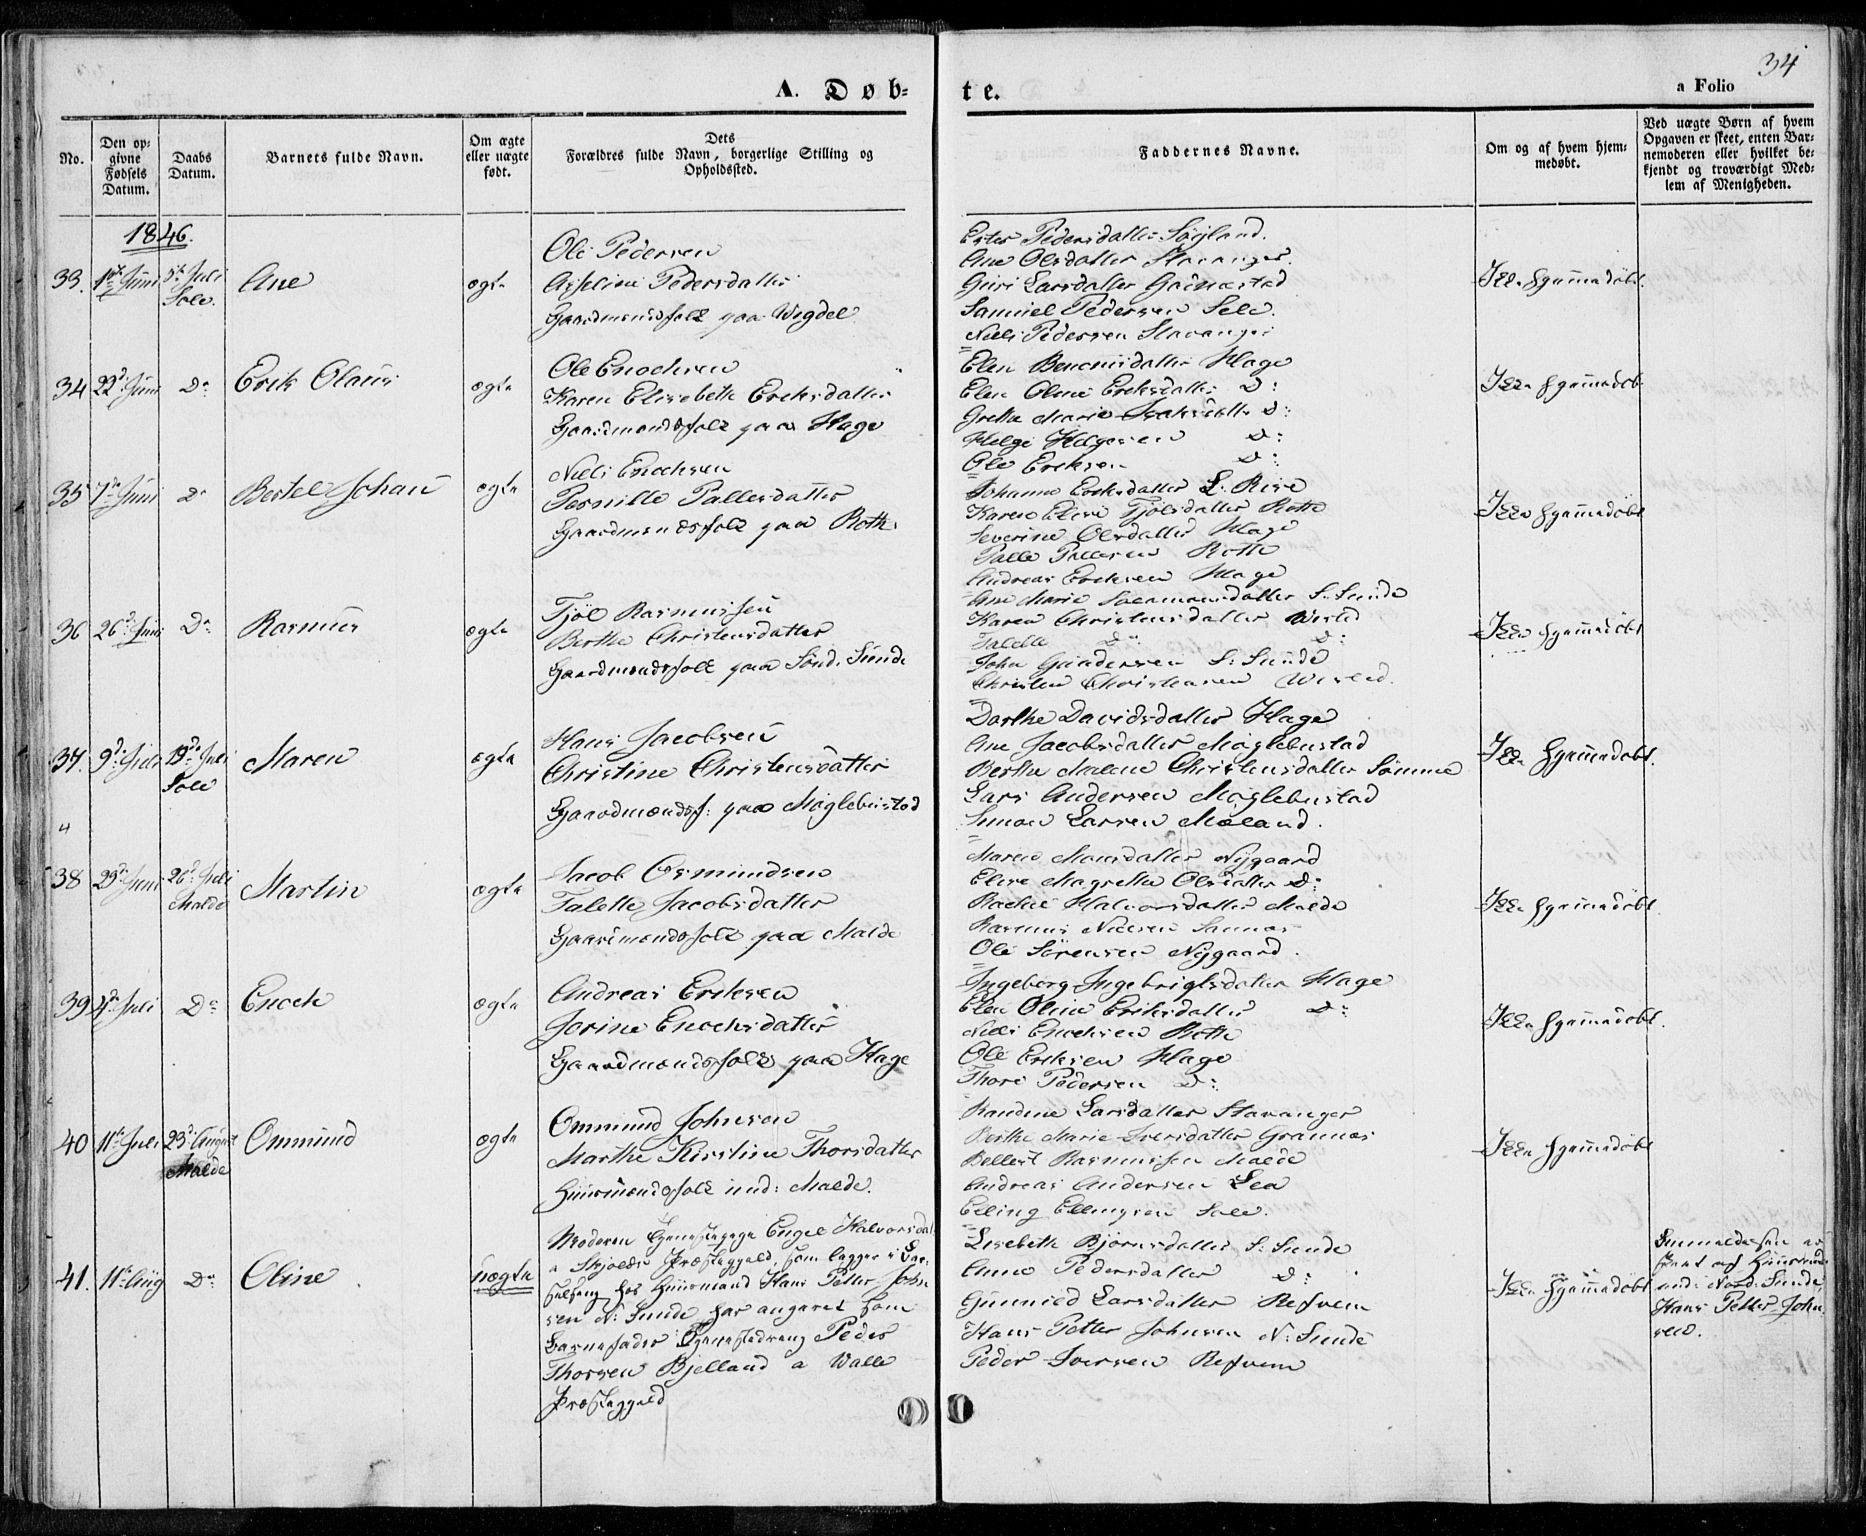 34
A. Døb-
te.
a Folio
No.
Den op-
givne
Fødsels
Datum.
Daabs
Datum.
Barnets fulde Navn.
Om ægte
eller uægte
født.
Dets
Forældres fulde Navn, borgerlige Stilling og
Opholdssted.
Faddernes Navne.
Om og af hvem hjem-
medøbt.
Ved uægte Børn af hvem
Opgaven er skeet, enten Bar-
nemoderen eller hvilket be-
kjendt og troværdigt Med-
lem af Menigheden.
1846.
33.
Juni
5te Juli
Sole
Ane
ægte
Ole Pedersen
Pedersdatter
Gaardmandsfolk paa Wigdel
Ester Pedersdatter
Ane Olsdatter Stavanger
Guri Larsdatter
Samuel Pedersen Sele.
Niels Pedersen Stavanger
Ikke hjemmedøbt.
34
22d Juni
Do
Erik Olaus
ægte
Ole Enochsen
Karen Elisabeth Eriksdatter
Gaardmandsfolk paa Hage
Elen Hage
Elen Oline Eriksdatter Do:
Grethe Marie Do:
Helge Helgesen Do:
Ole Eriksen Do:
Ikke hjemmedøbt
35
7de Juni
Do
Bertel Johan
ægte
Niels Enochsen
Pernille Pallesdatter
Gaardmandsfolk paa Rotte
Johanne Eriksdatter L: Rise
Karen Elise Tjølsdatter Rotte
Severine Olsdatter Hage
Palle Pallesen Rotte
Andreas Eriksen Hage
Ikke hjemmedøbt
36
26d Juni
Do
Rasmus
ægte
Tjøl Rasmussen
Berthe Christensdatter
Gaardmandsfolk paa Sönd. Sunde
Ane Marie S. Sunde
Karen Christensdatter
Talette Do Do:
John Gundersen S: Sunde
Christen Christensen
Ikke hjemmedøbt
37.
9d: Juli
19de Juli
Sole
Maren
ægte
Hans Jacobsen
Christine Christensdatter
Gaardmandsf: paa Møglebustad
Dorthe Davidsdatter Hage
Ane Jacobsdatter Møglebustad
Berthe Malene Christensdatter Sömme
Lars Andersen Møglebustad
Simon Larsen Mæland.
Ikke hjemmedøbt.
38
29de Juni
26d Juli
Malde
Martin
ægte
Jacob Osmundsen
Talette Jacobsdatter
Gaardmandsfolk paa Malde
Maren Monsdatter Nygaard
Elise Magrethe Olsdatter Do:
Rachel Halvorsdatter Malde
Rasmus Nielsen Sunnes
Ole Sørensen Nygaard.
Ikke hjemmedøbt.
39
4de Juli
Do
Enoch
ægte
Andreas Eriksen
Jorine Enochsdatter
Gaardmandsfolk paa Hage
Ingeborg Ingebrigtsdatter Hage
Elen Oline Eriksdatter Do:
Niels Enochsen Rotte
Ole Eriksen Hage
Thore Pedersen Do:
Ikke hjemmedøbt.
40
11te Juli
23d: August
Malde
Ommund
ægte
Ommund Johnsen
Marthe Kirstine Thorsdatter
Huusmandsfolk und: Malde.
Randine Larsdatter Stavanger
Berthe Marie Iversdatter Grannes
Bellest Rasmussen Malde
Andreas Andersen Lea
Elling Ellingsen Sole.
Ikke hjemmedøbt
41.
11te Aug
Do
Oline
uægte
Moderen Tjenestepige Engel Halvorsdat.
a Skjolds Præstegjeld, som ligger i Bar-
selseng hos Huusmand Hans Petter John
sen N: Sunde har angivet som
Barnefader Tjenestedreng Peder
Thorsen Bjelland a Walle
Præstegjeld
Lisebeth Bjørnsdatter S: Sunde
Anne Pedersdatter Do:
Gunnild Larsdatter Refvem
Hans Petter Johnsen N: Sunde
Peder Iversen Refvem
Ikke hjemmedøbt
Anmeldelsen er
skeet af Huusmand
und: Nord: Sunde,
Hans Petter John
sen.